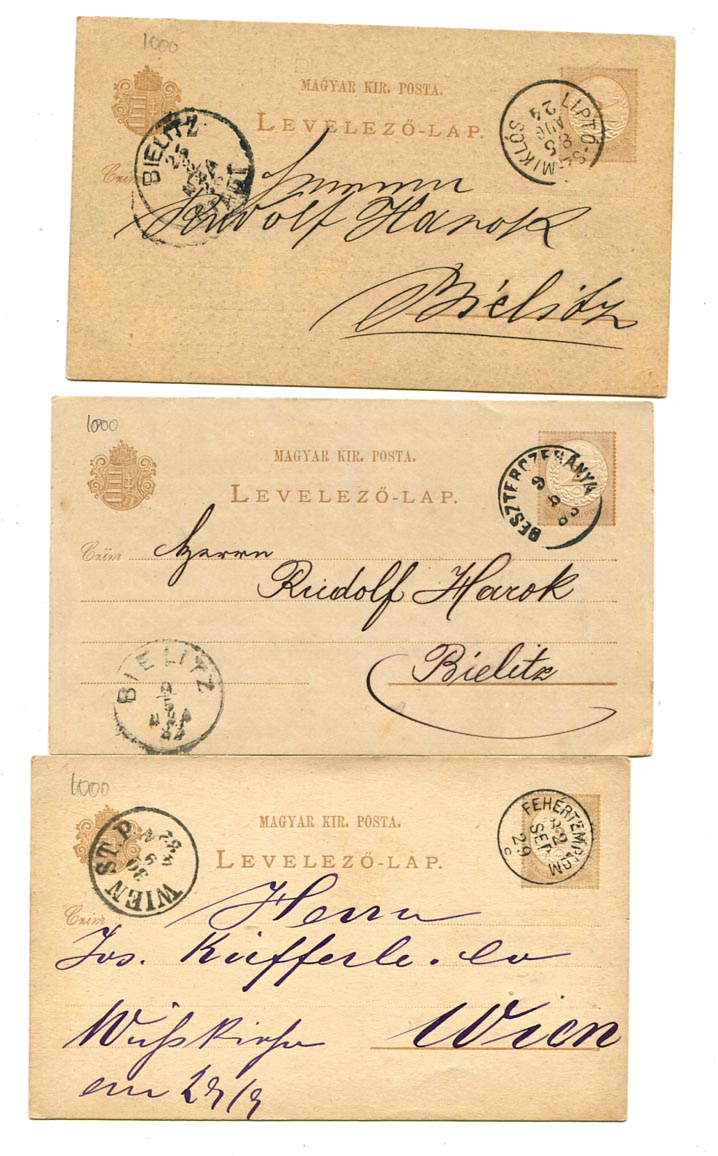 1000
MAGYAR KIR. POSTA.
LEVELEZŐ-LAP.
LIPTÓ-SZ-MIKLOS
85
AUG
24
BIELITZ
STADT
Czim
Herrn
Rudolf Harok
Bielitz
1000
MAGYAR KIR. POSTA.
LEVELEZŐ-LAP.
BESZTERCZEBÁNYA
Czim
Herrn
Rudolf Harok
Bielitz
BIELITZ
1000
MAGYAR KIR. POSTA.
LEVELEZŐ-LAP.
FEHÉRTEMPLOM
82
SEP
29
C
WIEN ST.P.
30
9
82
Czim
Herrn
Jos. Küfferle. Co
Wien
Weißkirchen
am 29/9